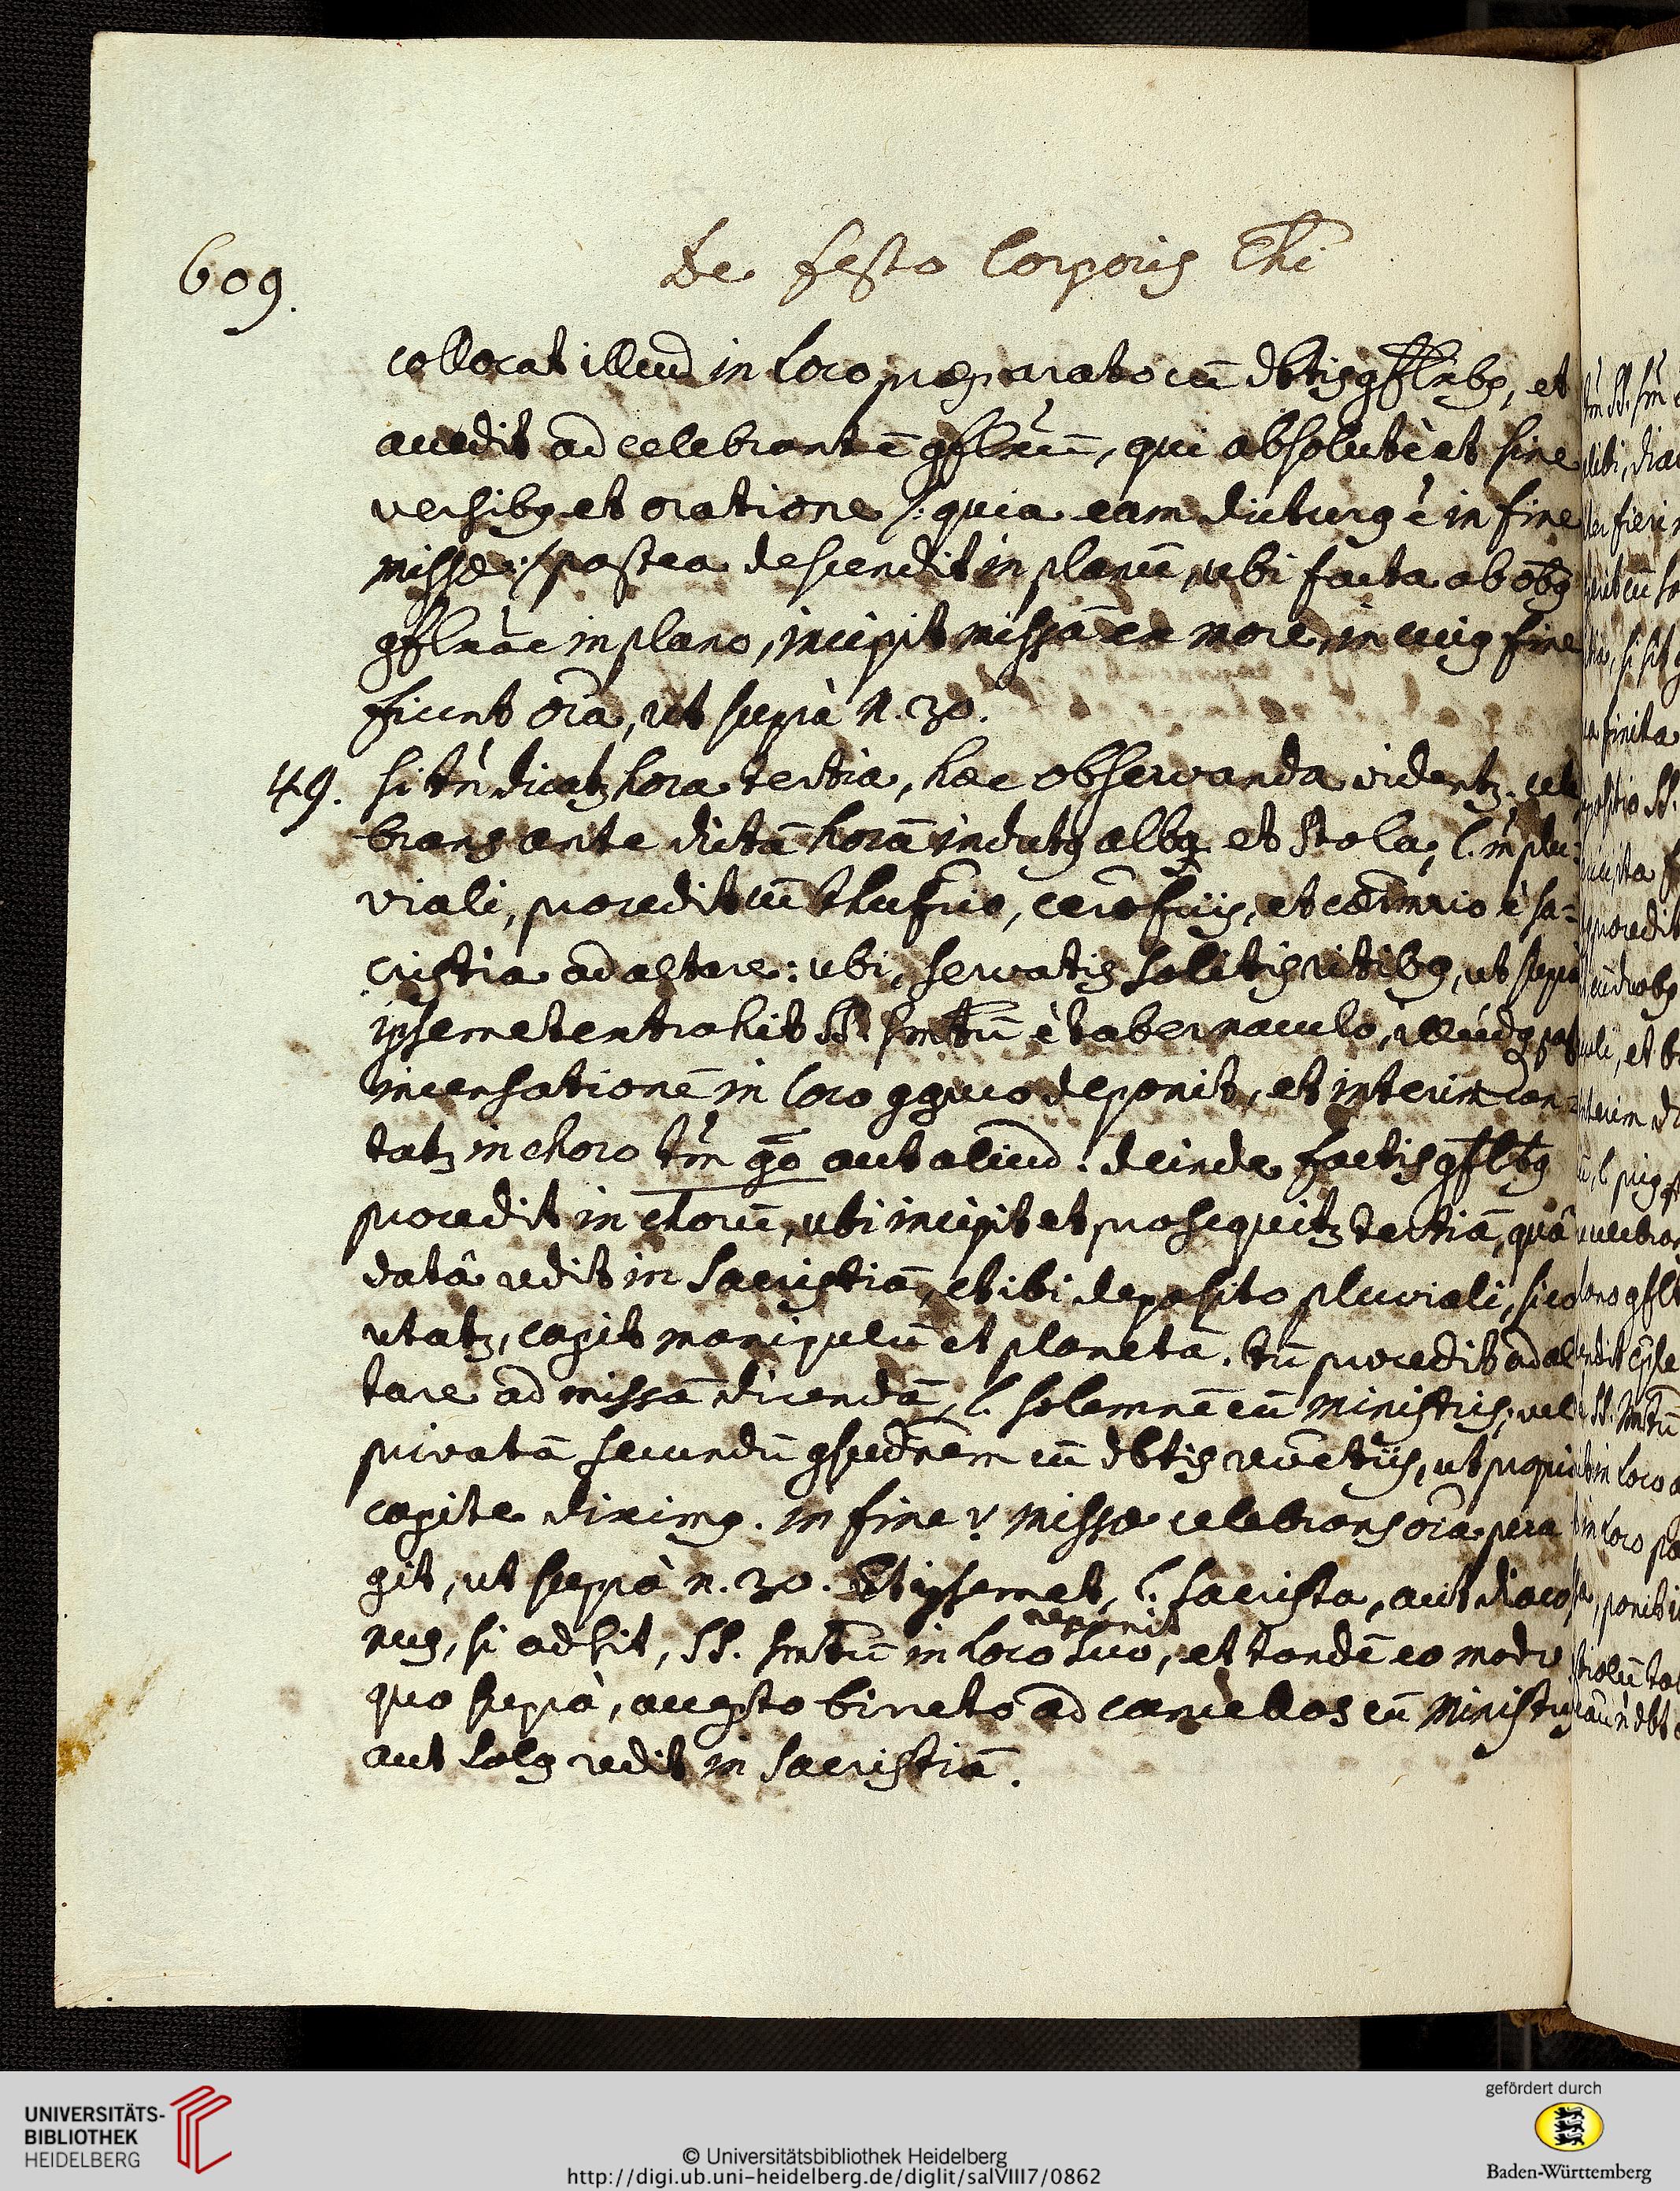 609.
De festo Corporis Chi
collocat illud in loco præparato cū dbtis gflxbg, et
accedit ad celebrantē gflxū, qui absolutè at sine
versibg et oratione /: quia eam dicturg è in fine
missæ :/ postea descendit in planū, ubi facta ab oībg
gflxāe in plano, incipit missā ex more, in cuig fine
fiunt oīa, ut suprà n. 30.
49. si tn̄ dicatz hora tertia, hæc observanda videntz. cele
brans ante dictā horā indutg albā et stola, l. in plu:
viali, procedit cū thufrio, cerofriis, et cærmrio è sa=
cristia ad altare: ubi, servatis solitis ritibg, ut suprà
ipsemet extrahit SS. Smtū è tabernaculo, illudq post
incensationē in loco ggruo deponit, et interim can=
tatz in choro tm̄ gō aut aliud. deinde factis gflbg
procedit in chorū, ubi incipit et prosequitz tertiā, quâ
datâ redit in sacristiā, et ibi deposito pluviali, si eo
utatz, capit manipulū et planetā. tū procedit ad al
tare ad missā dicendā, l. solemnē cū ministris, vel
privatā secundū gsuednem cū dbtis rēvetiis, ut proprio
capite diximg. in fine v missæ celebrans oīa pera
git, ut suprà n. 30. Et ipsemet, l. sacrista, aut diaco
nus, si adsit, SS. Smtū in loco suo reponit, et tandē eo modo
quo suprà, accepto birreto ad cancellos cū Ministris
aut solg redit in sacristiā.
UNIVERSITÄTS-
BIBLIOTHEK
HEIDELBERG
© Universitätsbibliothek Heidelberg
http://digi.ub.uni-heidelberg.de/diglit/salVIII7/0862
gefördert durch
Baden-Württemberg